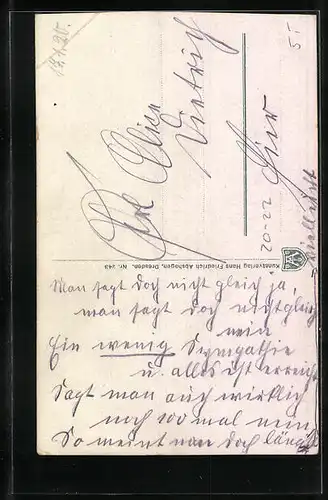 Man sagt doch nicht gleich ja,
man sagt doch nicht gleich
nein
Ein wenig Sympathie
u. alles ist erreicht
Sagt man auch wirklich
noch 100 mal nein
So meint man doch längst
Kunstverlag Hans Friedrich Abshagen, Dresden. Nr. 249
Dietrich
Hier
20-22
5 I